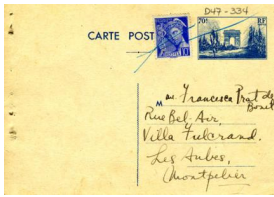 D47-334
CARTE POST
70c RF
10c
Mme Francesca Prat de
Rue Bel-Air,
Villa Fulcrand.
Les Aubes,
Montpelier